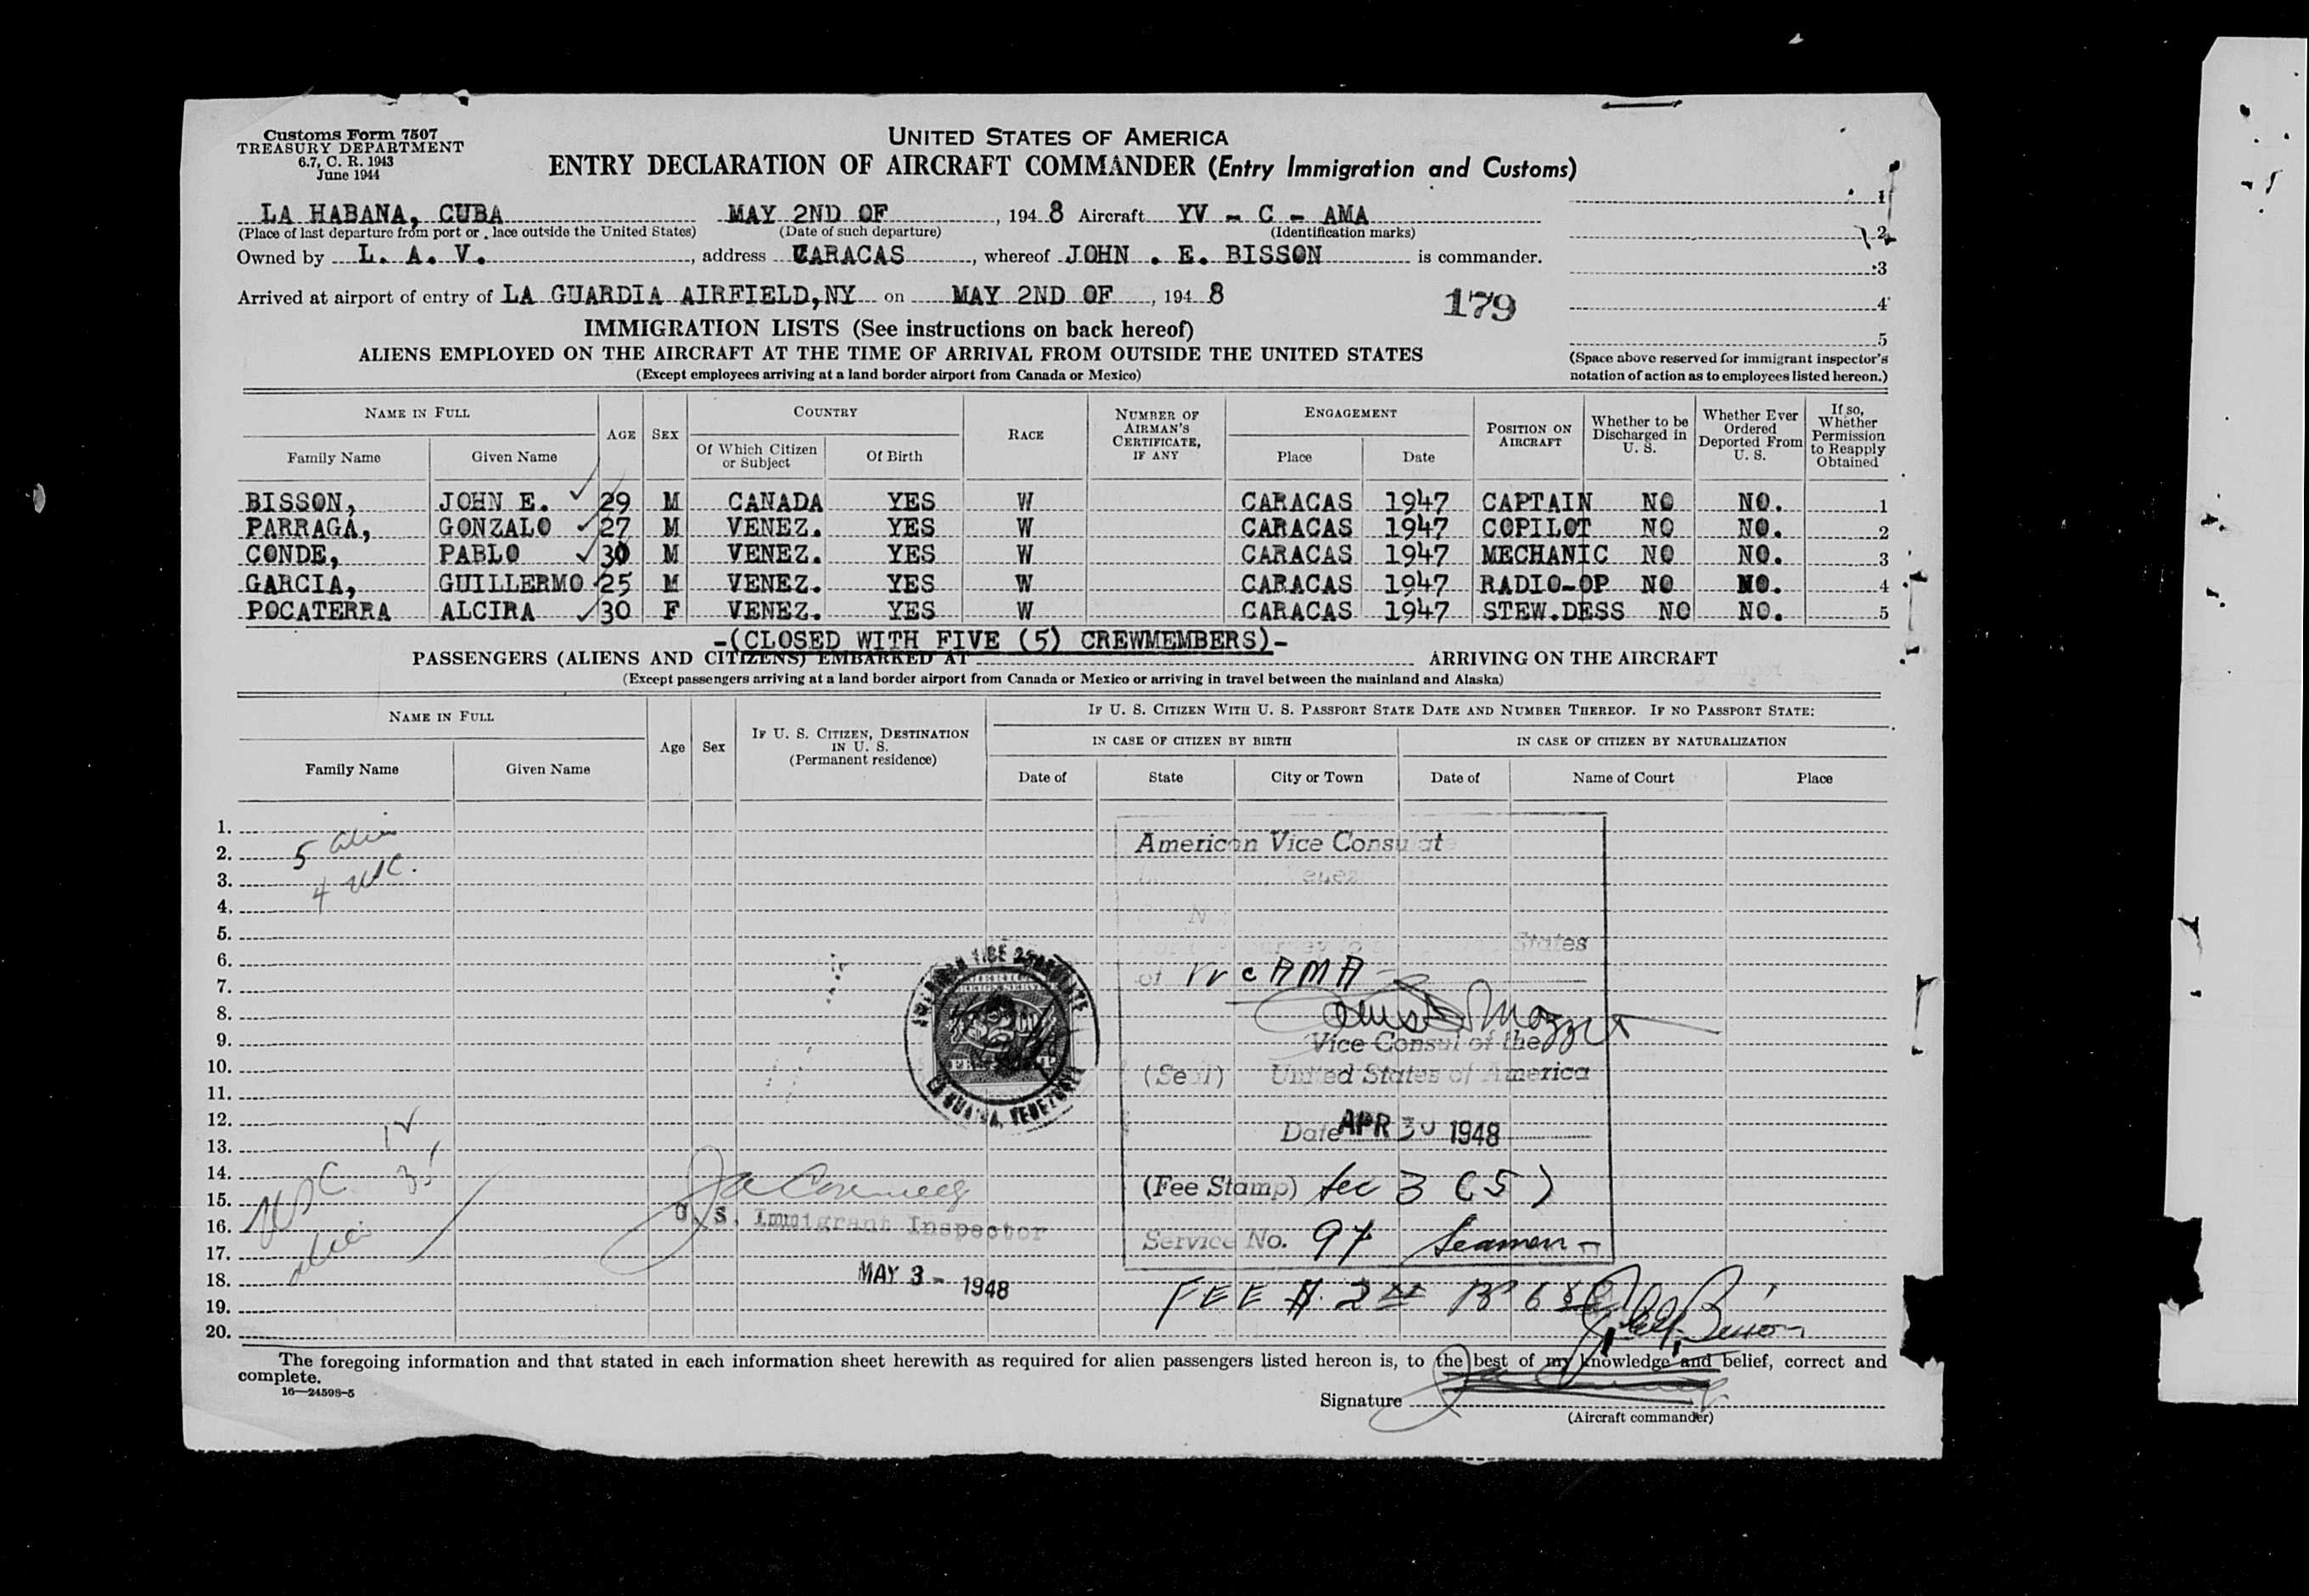 Customs Form 7507
TREASURY DEPARTMENT
6.7, C. R. 1943
June 1944
UNITED STATES OF AMERICA
ENTRY DECLARATION OF AIRCRAFT COMMANDER (Entry Immigration and Customs)
LA HABANA, CUBA MAY 2ND OF, 194 8 Aircraft YV - C - AMA
(Place of last departure from port or place outside the United States) (Date of such departure) (Identification marks)
Owned by L. A. V., address CARACAS, whereof JOHN . E. BISSON is commander.
Arrived at airport of entry of LA GUARDIA AIRFIELD,NY on MAY 2ND OF, 194 8
179
1
2
3
4
5
(Space above reserved for immigrant inspector's
notation of action as to employees listed hereon.)
IMMIGRATION LISTS (See instructions on back hereof)
ALIENS EMPLOYED ON THE AIRCRAFT AT THE TIME OF ARRIVAL FROM OUTSIDE THE UNITED STATES
(Except employees arriving at a land border airport from Canada or Mexico)
NAME IN FULL AGE SEX COUNTRY RACE NUMBER OF AIRMAN'S CERTIFICATE, IF ANY ENGAGEMENT POSITION ON AIRCRAFT Whether to be Discharged in U. S. Whether Ever Ordered Deported From U. S. If so, Whether Permission to Reapply Obtained
Family Name Given Name Of Which Citizen or Subject Of Birth Place Date
BISSON, JOHN E. 29 M CANADA YES W CARACAS 1947 CAPTAIN NO NO. 1
PARRAGA, GONZALO 27 M VENEZ. YES W CARACAS 1947 COPILOT NO NO. 2
CONDE, PABLO 30 M VENEZ. YES W CARACAS 1947 MECHANIC NO NO. 3
GARCIA, GUILLERMO 25 M VENEZ. YES W CARACAS 1947 RADIO-OP NO NO. 4
POCATERRA ALCIRA 30 F VENEZ. YES W CARACAS 1947 STEW.DESS NO NO. 5
-(CLOSED WITH FIVE (5) CREWMEMBERS)-
PASSENGERS (ALIENS AND CITIZENS) EMBARKED AT ARRIVING ON THE AIRCRAFT
(Except passengers arriving at a land border airport from Canada or Mexico or arriving in travel between the mainland and Alaska)
NAME IN FULL Age Sex IF U. S. CITIZEN, DESTINATION IN U. S. (Permanent residence) IF U. S. CITIZEN WITH U. S. PASSPORT STATE DATE AND NUMBER THEREOF. IF NO PASSPORT STATE:
IN CASE OF CITIZEN BY BIRTH IN CASE OF CITIZEN BY NATURALIZATION
Family Name Given Name Date of State City or Town Date of Name of Court Place
1.
2. 5
3. 4
4.
5.
6.
7.
8.
9.
10.
11.
12.
13.
14.
15.
16.
17.
18.
19.
20.
American Vice Consulat
States
of YV C AMA
Vice Consul of the
(Seal) United States of America
Date APR 30 1948
(Fee Stamp) Sec 3 (5)
Service No. 97 Seamen
FEE $ 2
LA GUAIRA, VENEZUELA
U. S. Immigrant Inspector
MAY 3 - 1948
The foregoing information and that stated in each information sheet herewith as required for alien passengers listed hereon is, to the best of my knowledge and belief, correct and
complete.
16—24598-5
Signature
(Aircraft commander)